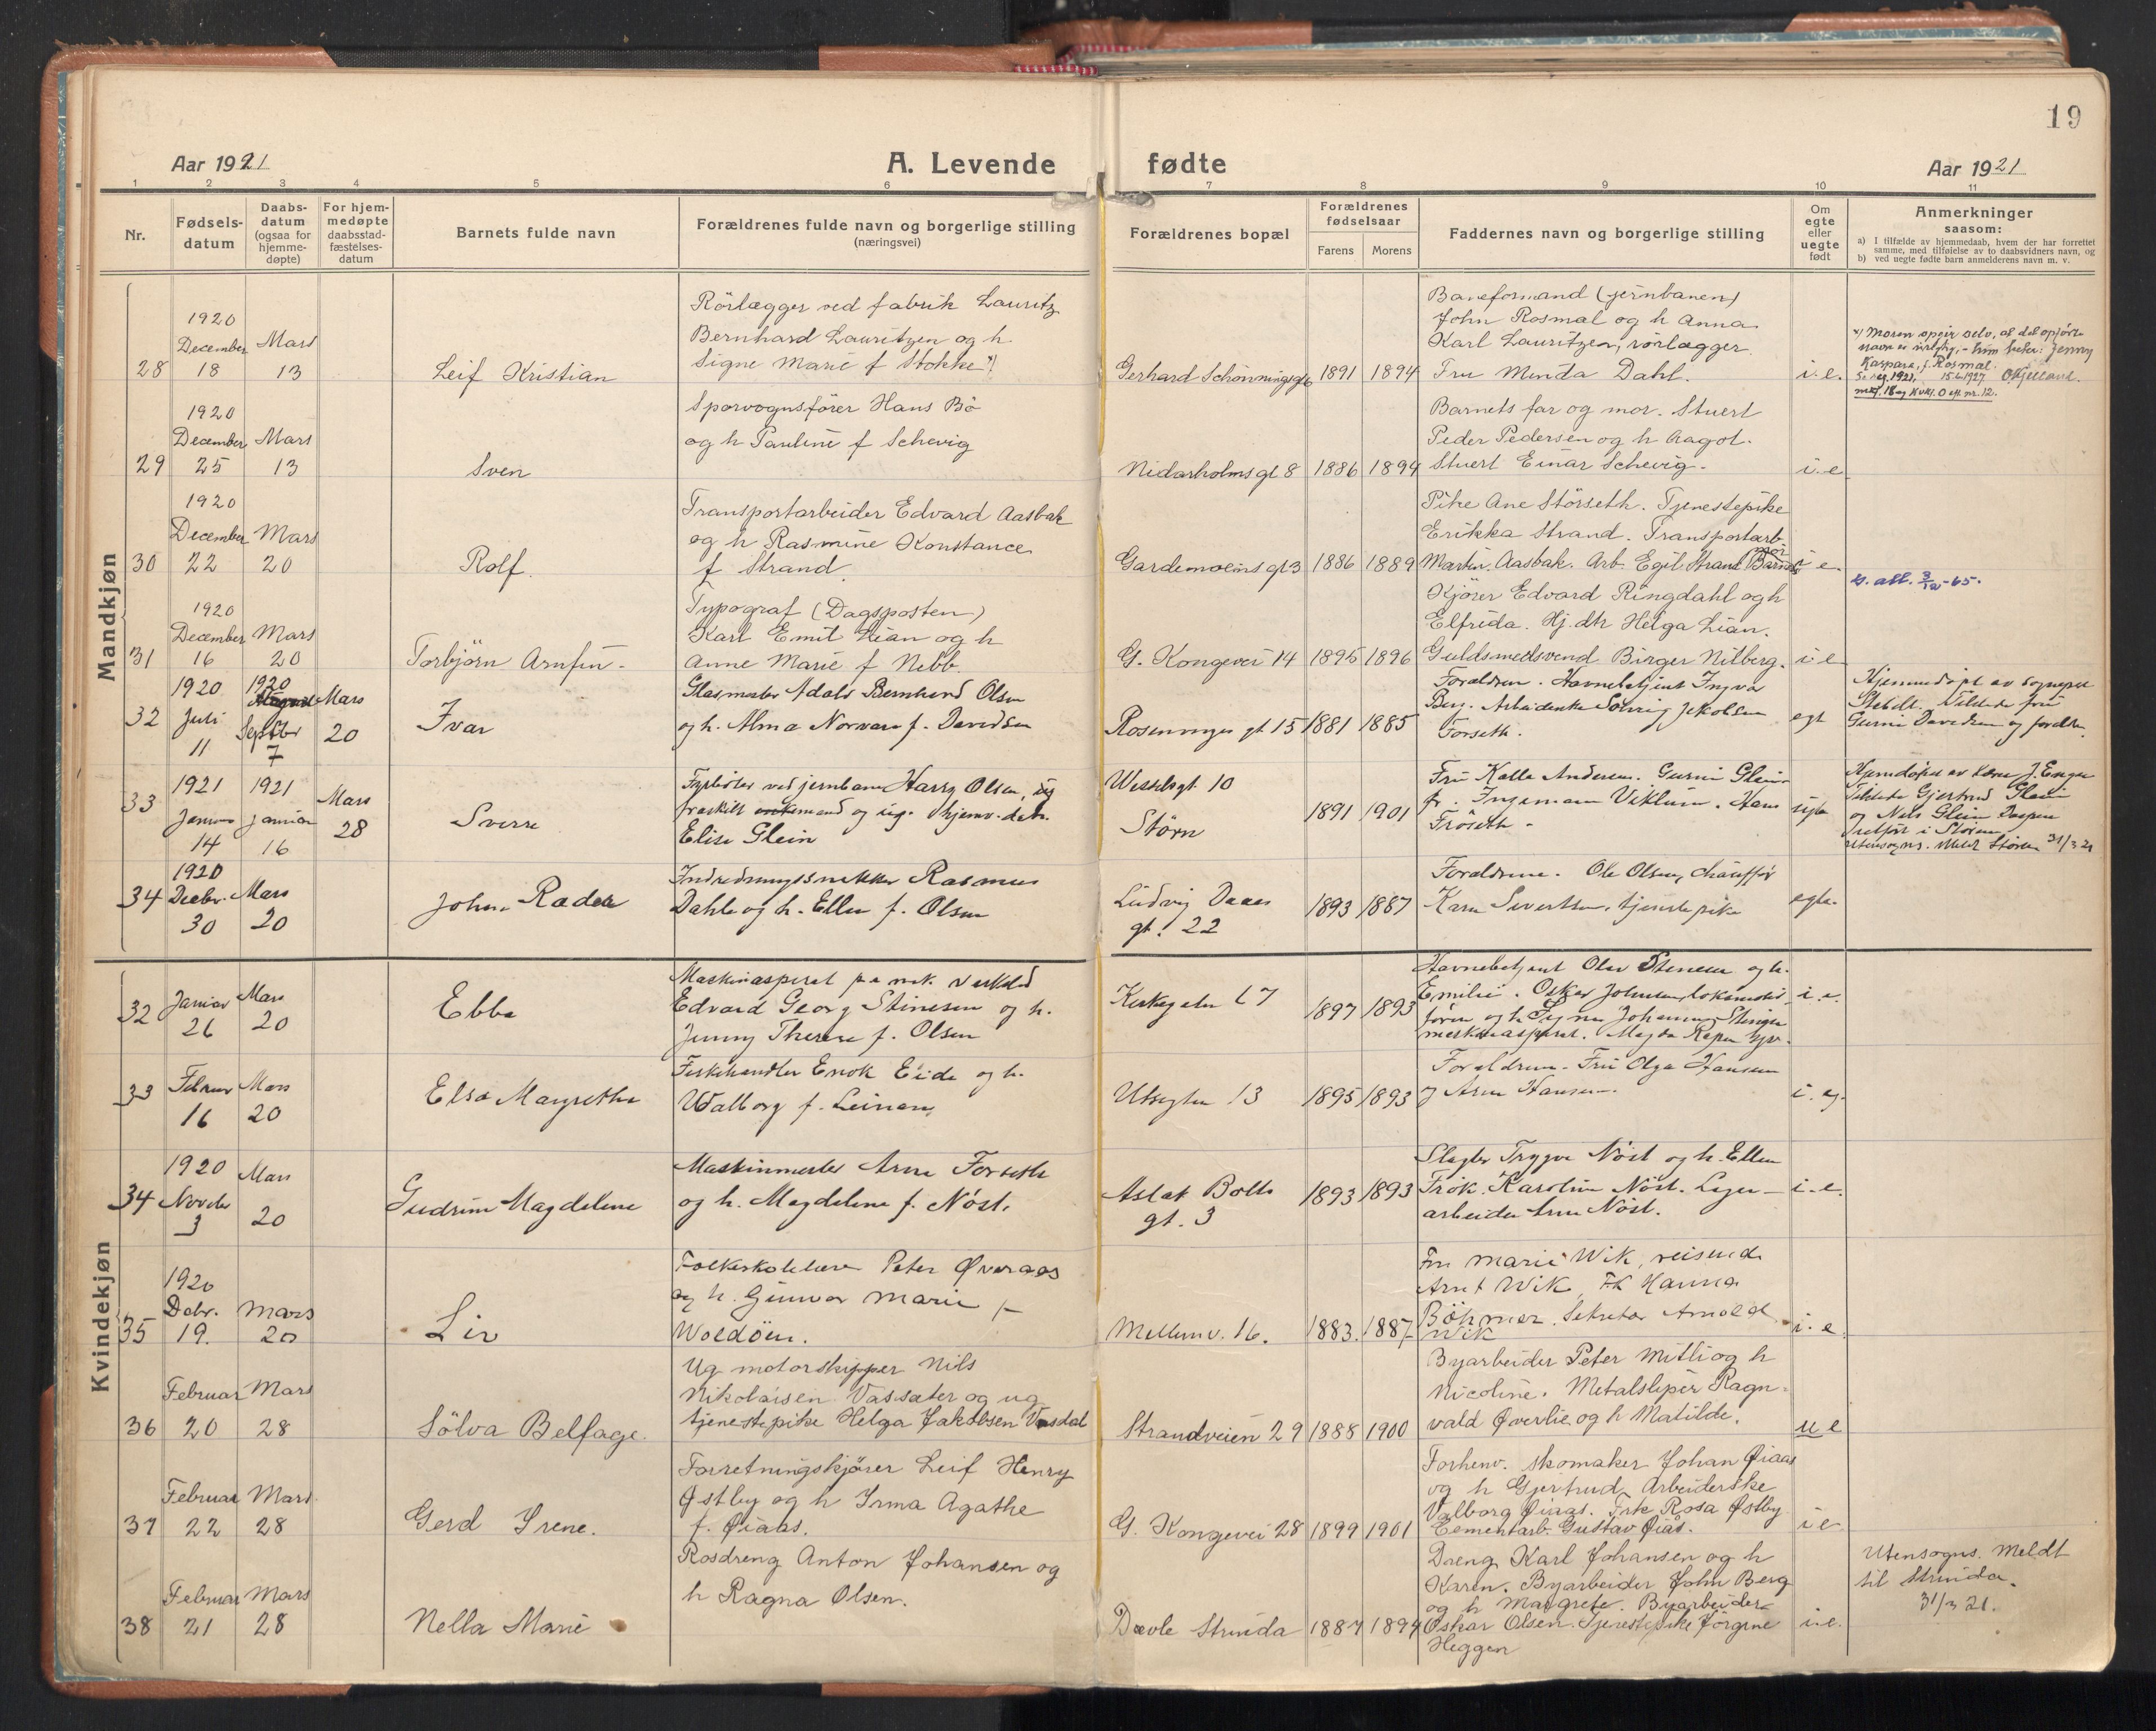 19
Aar 1921
A. Levende fødte
Aar 1921
1 2 3 4 5 6 7 8 9 10 11
Nr.
Fødsels-
datum
Daabs-
datum
(ogsaa for
hjemme-
døpte)
For hjem-
medøpte
daabsstad-
fæstelses-
datum
Barnets fulde navn
Forældrenes fulde navn og borgerlige stilling
(næringsvei)
Forældrenes bopæl
Forældrenes
fødselsaar
Farens Morens
Faddernes navn og borgerlige stilling
Om
egte
eller
uegte
født
Anmerkninger
saasom:
a) I tilfælde av hjemmedaab, hvem der har forrettet
samme, med tilføielse av to daabsvidners navn, og
b) ved uegte fødte barn anmelderens navn m. v.
Mandkjøn
28
1920
December
18
Mars
13
Leif Kristian
Rörlægger ved fabrik Lauritz
Bernhard Lauritzen og h
Signe Marie f Stokke x)
Gerhard Schönningsgt 6
1891 1894
Baneformand (jernbanen)
John Rosmal og h Anna
Karl Lauritzen, rörlægger
Fru Minda Dahl.
i. e.
x) Moren opgir selv, at det opförte
navn er urigtig, - hun heter: Jenny
Kaspara, f. Rosmal.
15.6.1927 O Kjelland.
29
1920
December
25
Mars
13
Sven
Sporvognsfører Hans Bö
og h Pauline f Schevig
Nidarholms gt 8
1886 1894
Barnets far og mor. Stuert
Peder Pedersen og h Aagot.
Stuert Einar Schevig.
i. e
30
1920
December
22
Mars
20
Rolf.
Transportarbeider Edvard Aasbak
og h Rasmine Konstance
f Strand.
Gardemoens gt 3
1886 1889
Pike Ane Störseth. Tjenestepike
Erikka Strand. Transportarb.
Martin Aasbak. Arb. Egil Strand Barnets
mor
i e.
31
1920
December
16
Mars
20
Torbjörn Arnfin -
Typograf (Dagsposten)
Karl Emil Lian og h
Anne Marie f Nebb.
G. Kongevei 14
1895 1896
Kjører Edvard Ringdahl og h
Elfrida. Hj. dtr Helga Lian.
Guldsmedsvend Birger Nilberg.
i e
32
1920
Juli
11
1920
Septbr
7
Mars
20
Ivar
Glasmester Adals Bernhard Olsen
og h. Alma Norvara f. Davidsen
Rosenvinges gt 15
1881 1885
Forældren. Havnebetjent Ingvar
Berg. Arbeiderske Solveig Jakobsen
Forseth.
egt
Hjemmedöpt av sogneprest
Stabell. Tilstede fru
Gurine Davidsen og forældre.
33
1921
Januar
14
1921
Januar
16
Mars
28
Sverre
Fyrböter ved jernbanen Harry Olsen, ug
fraskilt enkemand og ug. hjemv. datr.
Elise Glein
Wesselsgt 10
Stören
1891 1901
Fru Kalla Andersen. Gurine Glein
fr. Ingeman Viklum. Hans
Fröseth -
uegte
Utensogns. Meldt Stören 31/3 21
34
1920
Decbr.
30
Mars
20
John Rader
Indredningssnekker Rasmus
Dahle og h. Ellen f. Olsen
Ludvig Daaes
gt. 22
1893 1887
Forældrene. Ole Olsen, chauffør
Karen Sivertsen, tjenestepike
egte.
Kvindekjøn
32
Januar
26
Mars
20
Ebba
Maskinaspirant p a mek. verksted
Edvard Georg Stinesen og h.
Jenny Therese f. Olsen
Kirkegaten 67
1897 1893
Havnebetjent Olav Stenesen og h.
Emilie. Oskar Johnsen, lokomotiv-
i. e.
33
Februar
16
Mars
20
Elsa Margrethe
Fiskehandler Enok Eide og h.
Walborg f. Leinan
Utsegten 13
1895 1893
Forældrene. Fru Olga Hansen
og Arne Hansen.
i. eg.
34
1920
Novebr
3
Mars
20
Gudrun Magdelene
Maskinmester Arne Forseth
og h. Magdelene f. Nöst.
Aslak Bolts
gt. 3
1893 1893
Slagter Trygve Nöst og h. Ellen
Frök. Karoline Nöst. Lager-
arbeider Arne Nöst.
i. e.
35
1920
Debr.
19.
Mars
20
Liv
Folkeskolelærer Peter Øveraas
og h. Gunvor Marie f
Woldöen.
Mellemv. 16.
1883. 1887
Fru Marie Wik, reisende
Arnt Wik, Frk Hanna
Böhmer. Sekretær Arnold
Wik
i. e
36
Februar
20
Mars
28
Sölva Belfage.
Ug motorskipper Nils
Nikolaisen Vassæter og ug
tjenestepike Helga Jakobsen Vasdal
Strandveien 29
1888 1900
Byarbeider Peter Mitli og h
Nicoline. Metalsliper Ragn-
vald Øverlie og h Matilde.
u e
37
Februar
22
Mars
28
Gerd Irene.
Forretningskjører Leif Henry
Østby og h Irma Agathe
f. Øiaas.
G. Kongevei 28
1899 1901
Forhenv. skomaker Johan Øiaas
og h Gjertrud. Arbeiderske
Valborg Øiaas. Frk Rosa Østby
Cementarb. Gustav Øiås.
i e
38
Februar
21
Mars
28
Nella Marie
Rosdreng Anton Johansen og
h Ragna Olsen.
Dævle Strinda
1887 1899
Dreng Karl Johansen og h
Karen. Byarbeider John Berg
og h Margrete. Byarbeider
Oskar Olsen. Tjenestepike Jörgine
Heggen
i.e.
Utensogns. Meldt
til Strinda.
31/3 21.